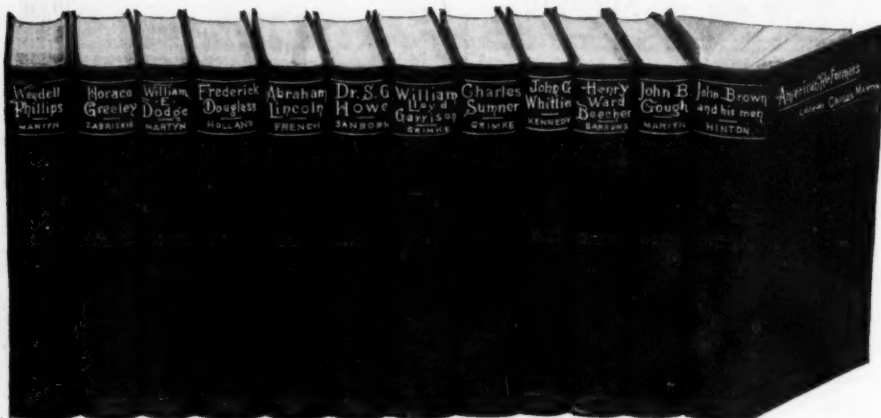 Wendell
Phillips
MARTYN
Horace
Greeley
ZABRISKIE
William
E
Dodge
MARTYN
Frederick
Douglass
HOLLAND
Abraham
Lincoln
FRENCH
Dr. S. G
Howe
SANBORN
William
Lloyd
Garrison
GRIMKE
Charles
Sumner
GRIMKE
John G
Whittier
KENNEDY
Henry
Ward
Beecher
BARROWS
John B.
Gough
MARTYN
John Brown
and his men
HINTON
American Reformers
CARLOS MARTYN